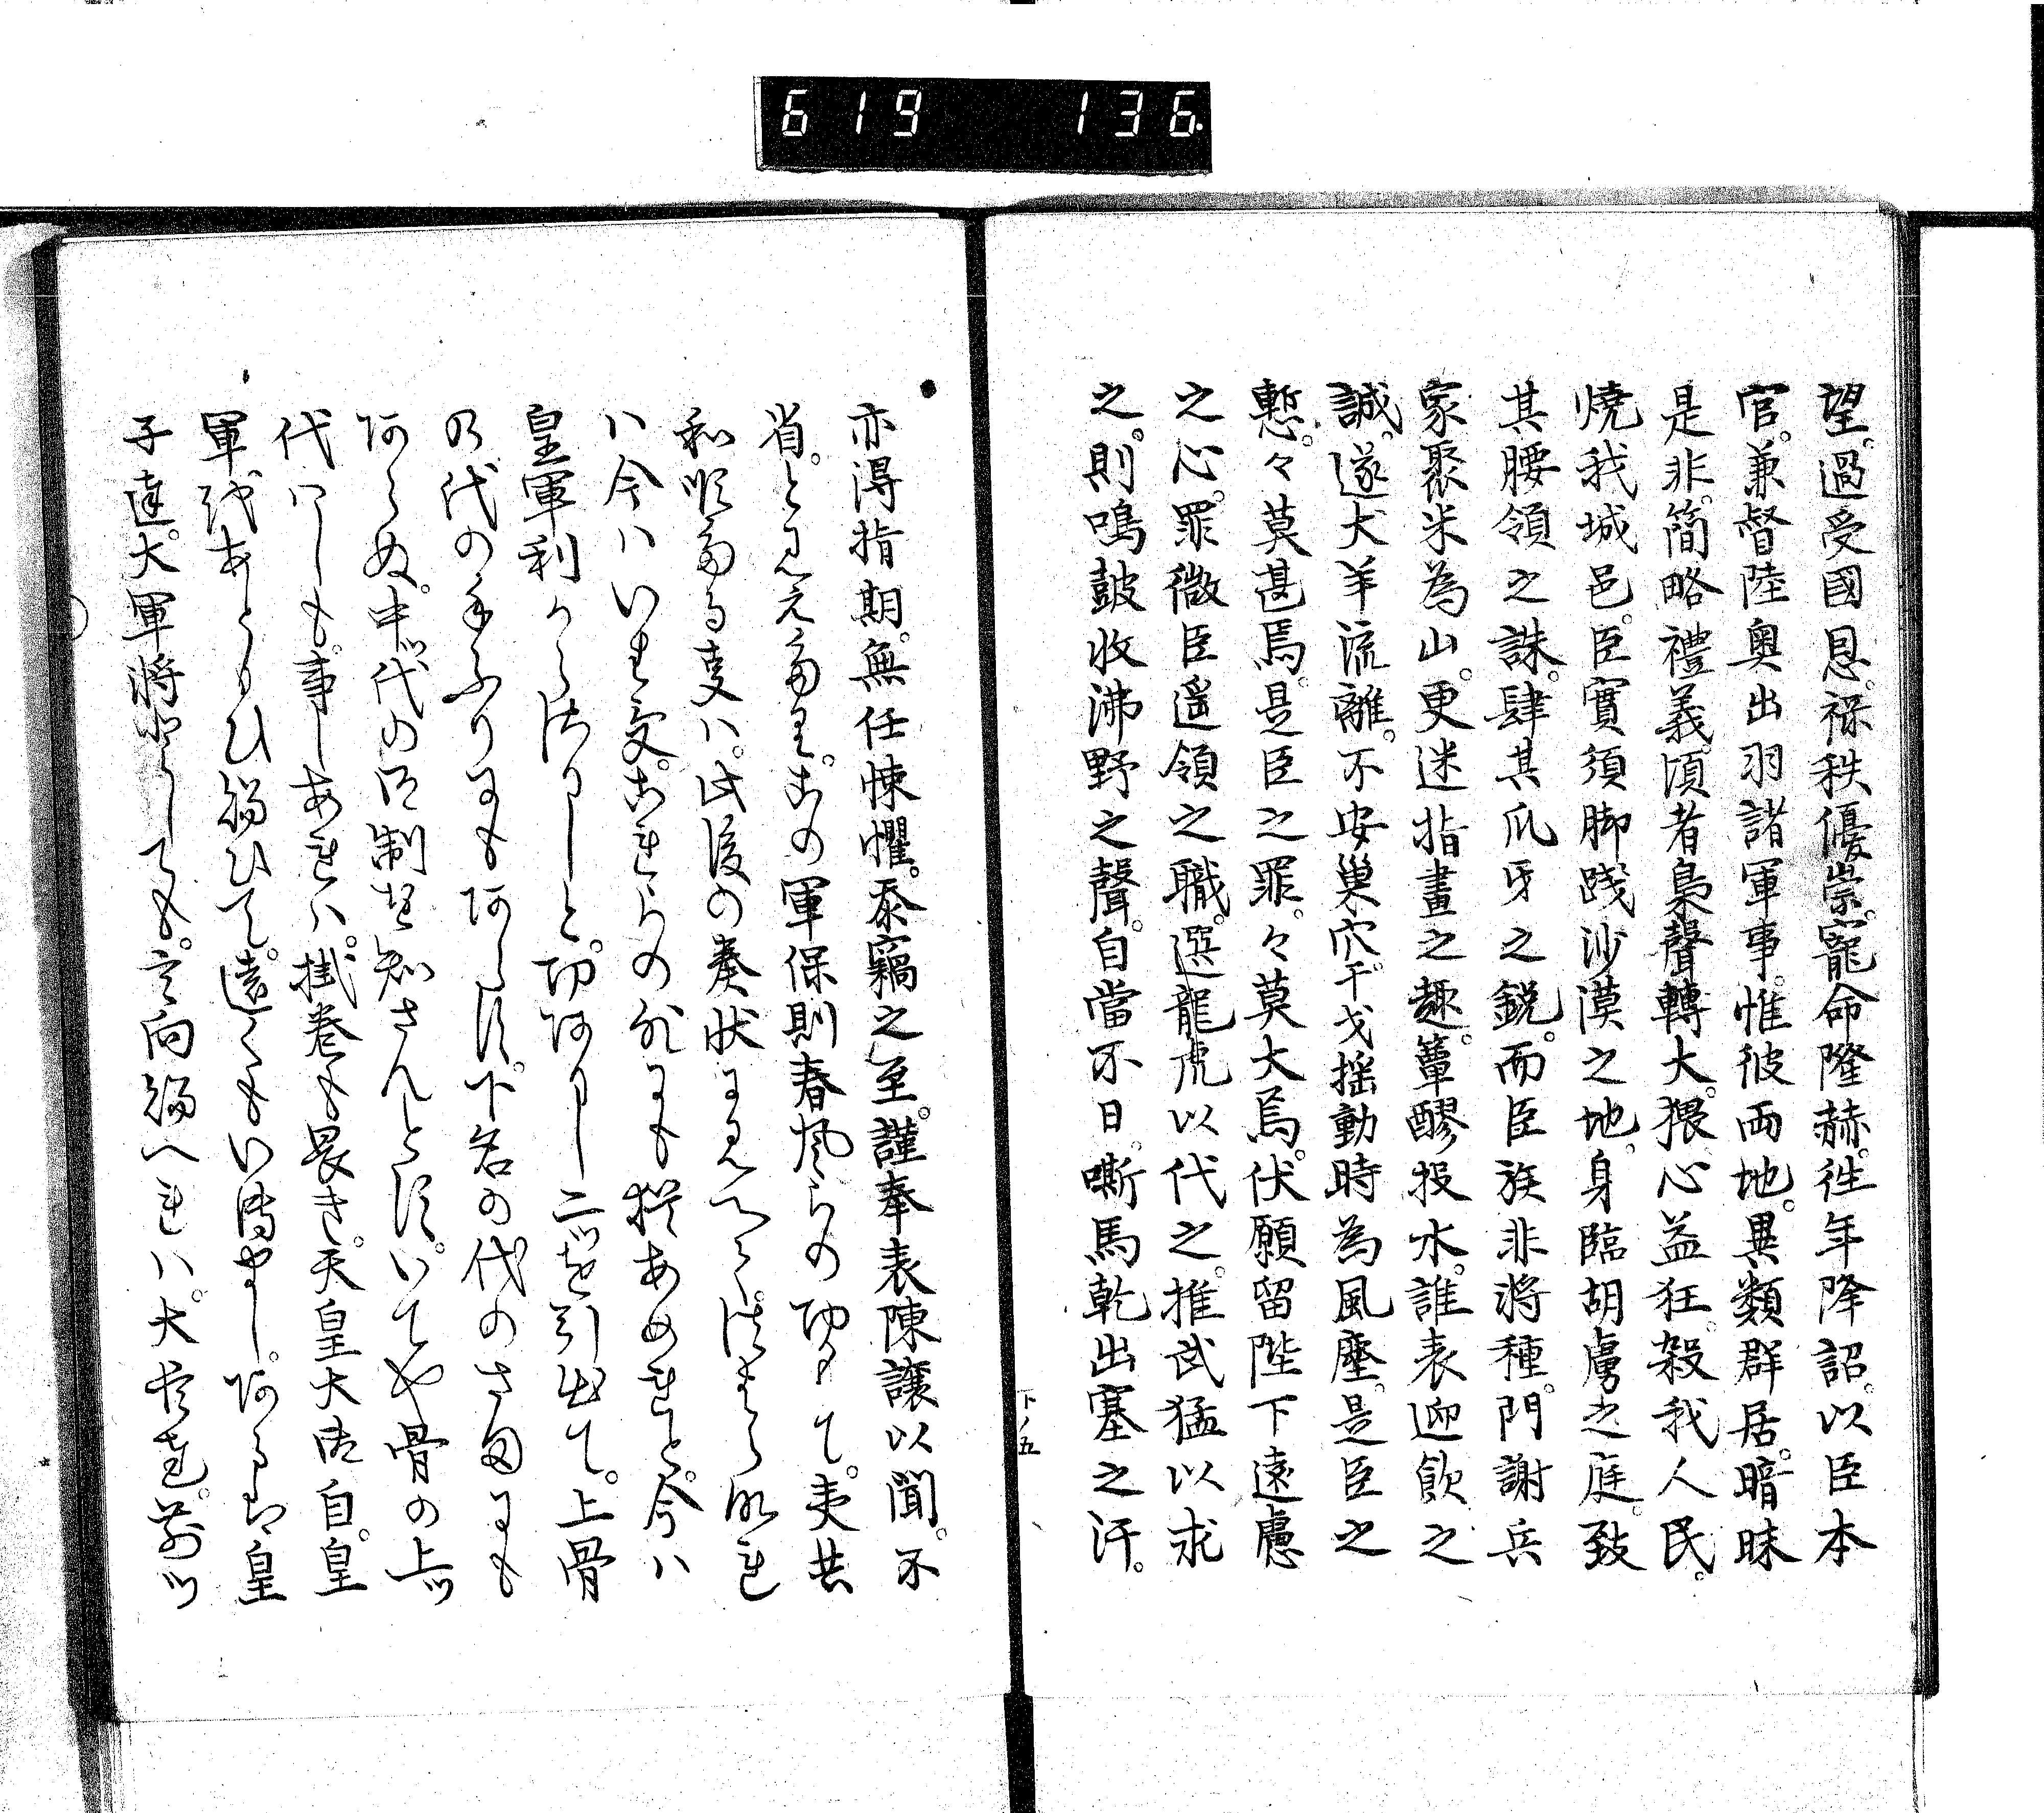 619 136
望。過受國恩。祿秩優崇。寵命隆赫。往年降詔。以臣本
官。兼督陸奥出羽諸軍事。惟彼両地。異類群居。暗昧
是非。簡略禮義。頃者梟聲轉大。猥心益狂。殺我人民。
焼我城邑。臣實須脚踐沙漠之地。身臨胡虜之庭。致
其腰領之誅。肆其爪牙之鋭。而臣族非將種。門謝兵
家。聚米為山。更迷指畫之趣。簞醪投水。誰表迎飲之
誠。遂犬羊流離。不安巣穴。干戈揺動。時為風塵。是臣之
慙。々莫甚焉。是臣之罪。々莫大焉。伏願留陛下遠慮
之心。罪微臣遥領之職。選龍虎以代之。推武猛以求
之。則鳴鼓收沸野之聲。自當不日。嘶馬乾出塞之汗。
下ノ五
亦得指期。無任悚懼。忝竊之至。謹奉表陳讓以聞。不
省。とみえたり。この軍保則春風らの功にて。夷共
和順たる事ハ。此後の奏状にみえて
ハ今ハいはす。これらの外にも猶あめれと。今ハ
皇軍利からさりしと。功ありし二ツを引出て。上骨
の代の手ふりにもあらす。下の代のさまにも
あらぬ。中ツ代の御制を知さんとす。いてや骨の上ツ
代にしも。事しあれハ。掛巻も畏き。天皇大御自。皇
軍をあともひ給ひて。遠くもいでまし。あるは皇
子達。大軍將としても。言向給へれハ。大